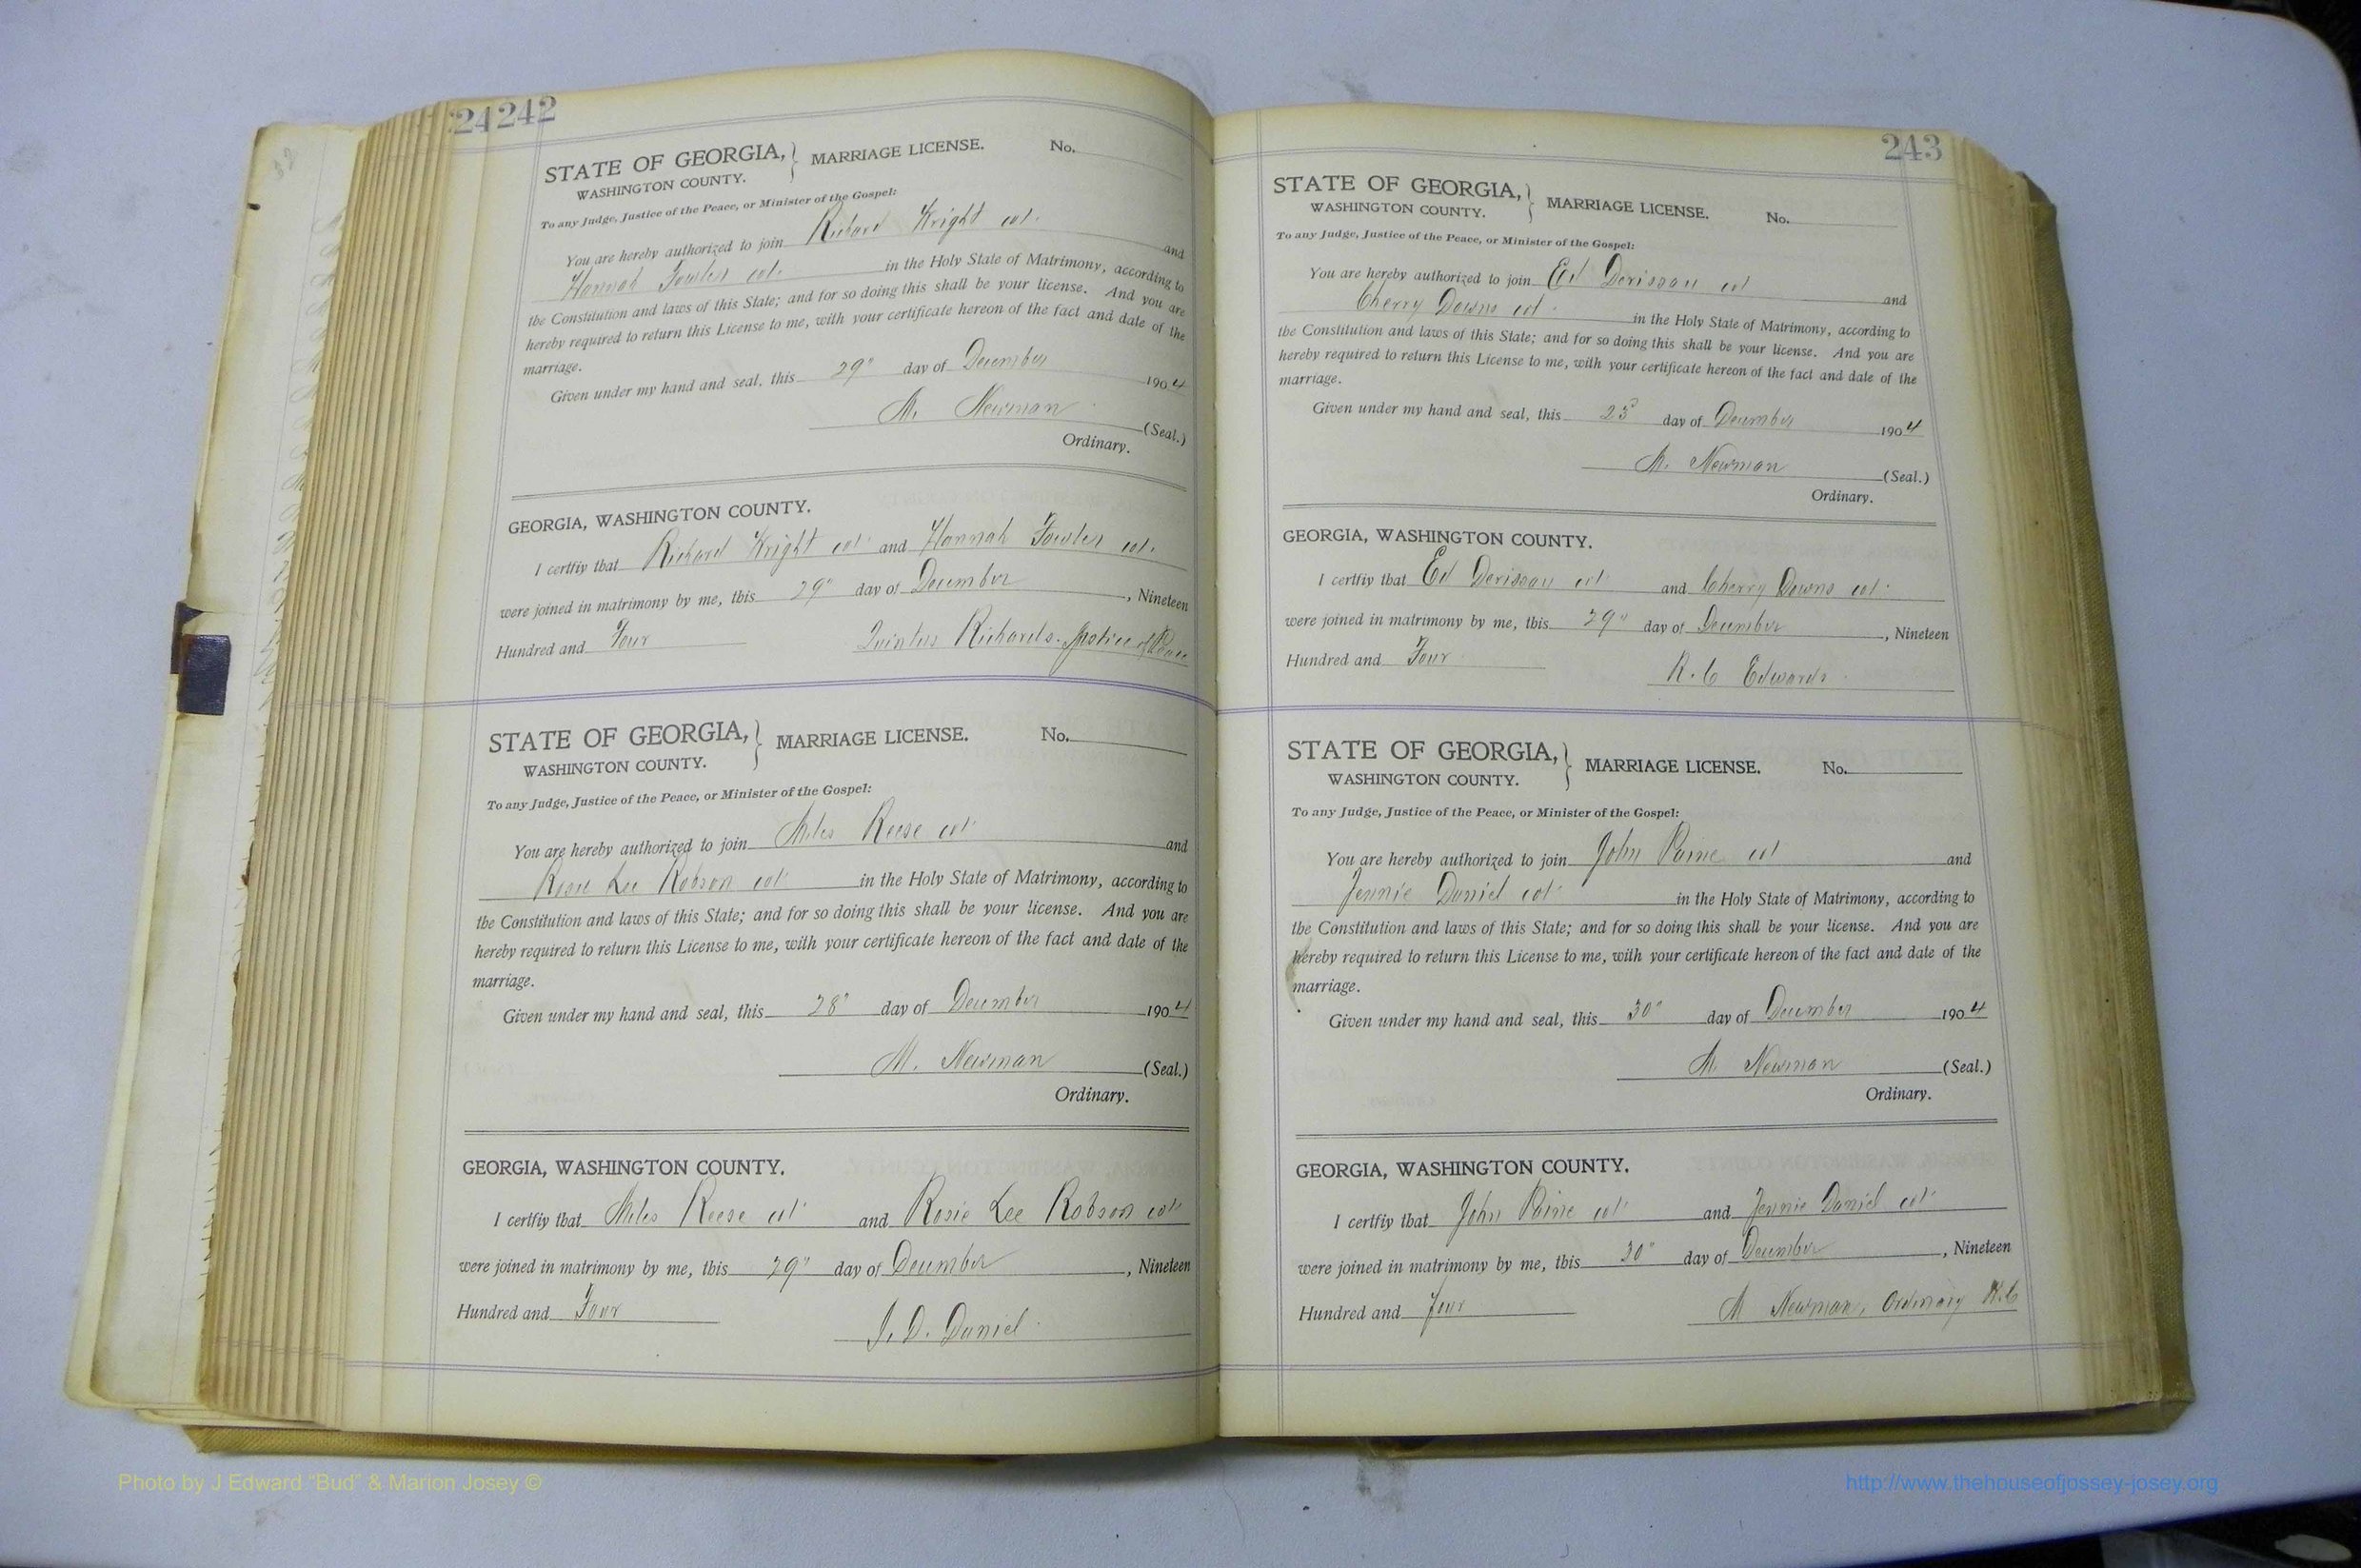 24 242
STATE OF GEORGIA, } MARRIAGE LICENSE. No.
WASHINGTON COUNTY.
To any Judge, Justice of the Peace, or Minister of the Gospel:
You are hereby authorized to join Richard Wright col. and
Hannah Fowler col. in the Holy State of Matrimony, according to
the Constitution and laws of this State; and for so doing this shall be your license. And you are
hereby required to return this License to me, with your certificate hereon of the fact and date of the
marriage.
Given under my hand and seal, this 29" day of December 1904
M. Newman (Seal.)
Ordinary.
GEORGIA, WASHINGTON COUNTY.
I certfiy that Richard Wright col and Hannah Fowler col.
were joined in matrimony by me, this 29" day of December, Nineteen
Hundred and Four Quintus Richards. Justice of Peace
STATE OF GEORGIA, } MARRIAGE LICENSE. No.
WASHINGTON COUNTY.
To any Judge, Justice of the Peace, or Minister of the Gospel:
You are hereby authorized to join Miles Reese col and
Rosie Lee Robson col in the Holy State of Matrimony, according to
the Constitution and laws of this State; and for so doing this shall be your license. And you are
hereby required to return this License to me, with your certificate hereon of the fact and date of the
marriage.
Given under my hand and seal, this 28" day of December 1904
M. Newman (Seal.)
Ordinary.
GEORGIA, WASHINGTON COUNTY.
I certfiy that Miles Reese col and Rosie Lee Robson col
were joined in matrimony by me, this 29" day of December, Nineteen
Hundred and Four J. D. Daniel
243
STATE OF GEORGIA, } MARRIAGE LICENSE. No.
WASHINGTON COUNTY.
To any Judge, Justice of the Peace, or Minister of the Gospel:
You are hereby authorized to join Ed Derisoau col and
Cherry Downs col in the Holy State of Matrimony, according to
the Constitution and laws of this State; and for so doing this shall be your license. And you are
hereby required to return this License to me, with your certificate hereon of the fact and date of the
marriage.
Given under my hand and seal, this day of December 1904
M. Newman (Seal.)
Ordinary.
GEORGIA, WASHINGTON COUNTY.
I certfiy that Ed Derisoau col and Cherry Downs col
were joined in matrimony by me, this 29" day of December, Nineteen
Hundred and Four R. C Edwards
STATE OF GEORGIA, } MARRIAGE LICENSE. No.
WASHINGTON COUNTY.
To any Judge, Justice of the Peace, or Minister of the Gospel:
You are hereby authorized to join John Paine col and
Jennie Daniel col in the Holy State of Matrimony, according to
the Constitution and laws of this State; and for so doing this shall be your license. And you are
hereby required to return this License to me, with your certificate hereon of the fact and date of the
marriage.
Given under my hand and seal, this 30" day of December 1904
M Newman (Seal.)
Ordinary.
GEORGIA, WASHINGTON COUNTY.
I certfiy that John Paine col and Jennie Daniel col
were joined in matrimony by me, this 30" day of December, Nineteen
Hundred and four M Newman, Ordinary W.C
Photo by J Edward “Bud” & Marion Josey ©
http://www.thehouseofjossey-josey.org